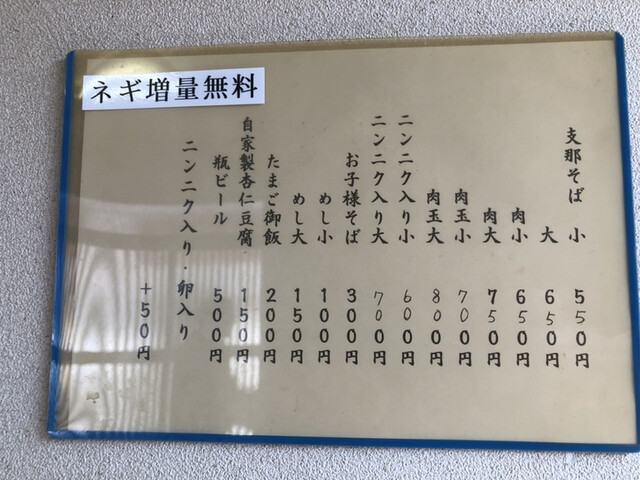 ネギ増量無料
支那そば 小 550円
大 650円
肉小 650円
肉大 750円
肉玉小 700円
肉玉大 800円
ニンニク入り小 600円
ニンニク入り大 700円
お子様そば 300円
めし小 100円
めし大 150円
たまご御飯 200円
自家製杏仁豆腐 150円
瓶ビール 500円
ニンニク入り・卵入り
+50円